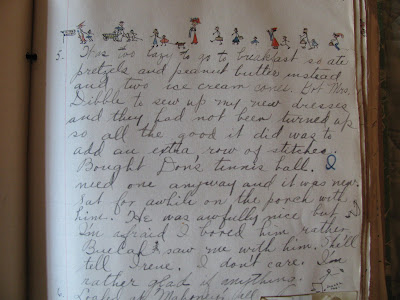 5. Was too lazy to go to breakfast so ate
pretzels and peanut butter instead
and two ice cream cones. Got Mrs.
Dibble to sew up my new dresses
and they had not been turned up
so all the good it did was to
add an extra row of stitches.
Bought Don's tennis ball. I
need one anyway and it was new.
Sat for awhile on the porch with
him. He was awfully nice but
I'm afraid I bored him rather.
saw me with him. She'll
tell Irene. I don't care. I'm
rather glad if anything.
6. Looked at